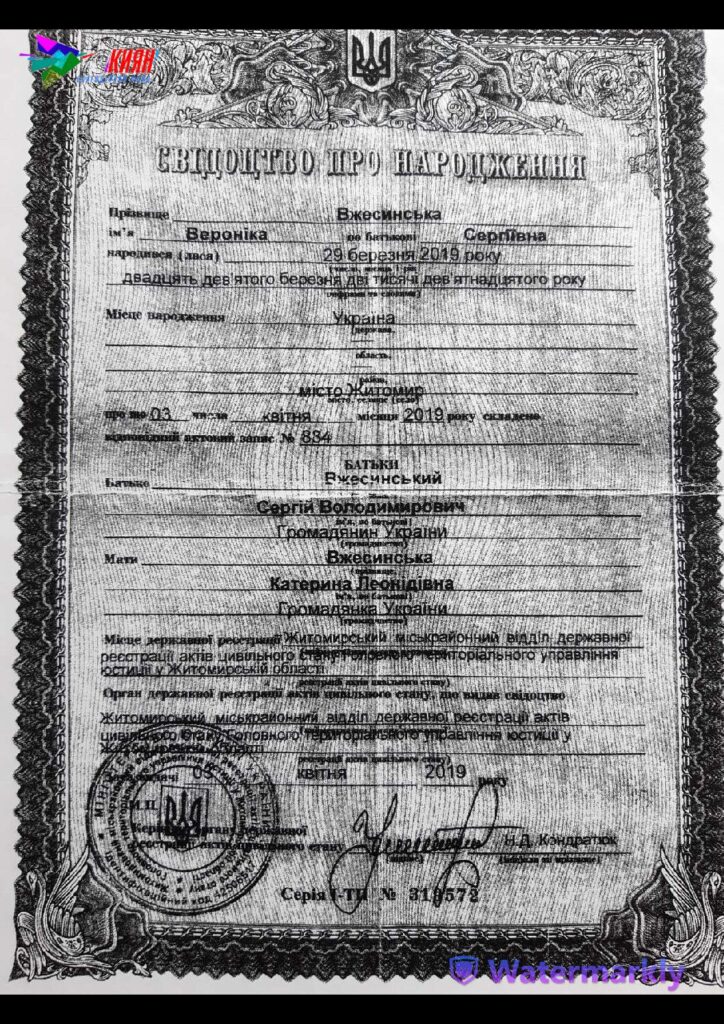 КИЯН
СВІДОЦТВО ПРО НАРОДЖЕННЯ
Прізвище Вжесинська
ім'я Вероніка по батькові Сергіївна
народився (лася) 29 березня 2019 року
(число, місяць і рік
двадцять дев'ятого березня дві тисячі дев'ятнадцятого року
(цифрами та словами)
Місце народження Україна
(держава,
область,
район,
місто Житомир
місто, селище (село)
про що 03 числа квітня місяця 2019 року складено
відповідний актовий запис № 834
БАТЬКИ
Батько Вжесинський
Сергій Володимирович
ім'я, по батькові)
Громадянин України
(громадянство)
Мати Вжесинська
(прізвище,
Катерина Леонідівна
ім'я, по батькові)
Громадянка України
(громадянство)
Місце державної реєстрації Житомирський міськрайонний відділ державної
реєстрації актів цивільного стану Головного територіального управління
юстиції у Житомирській області
реєстрації актів цивільного стану)
Орган державної реєстрації актів цивільного стану, що видав свідоцтво
Житомирський міськрайонний відділ державної реєстрації актів
цивільного стану Головного територіального управління юстиції у
Житомирській області
реєстрації актів цивільного стану)
03 квітня 2019 року
М.П.
Керівник органу державної
реєстрації актів цивільного стану Н.Д. Кондратюк
(підпис) (ініціали та прізвище)
Серія І-ТП № 319572
Watermarkly